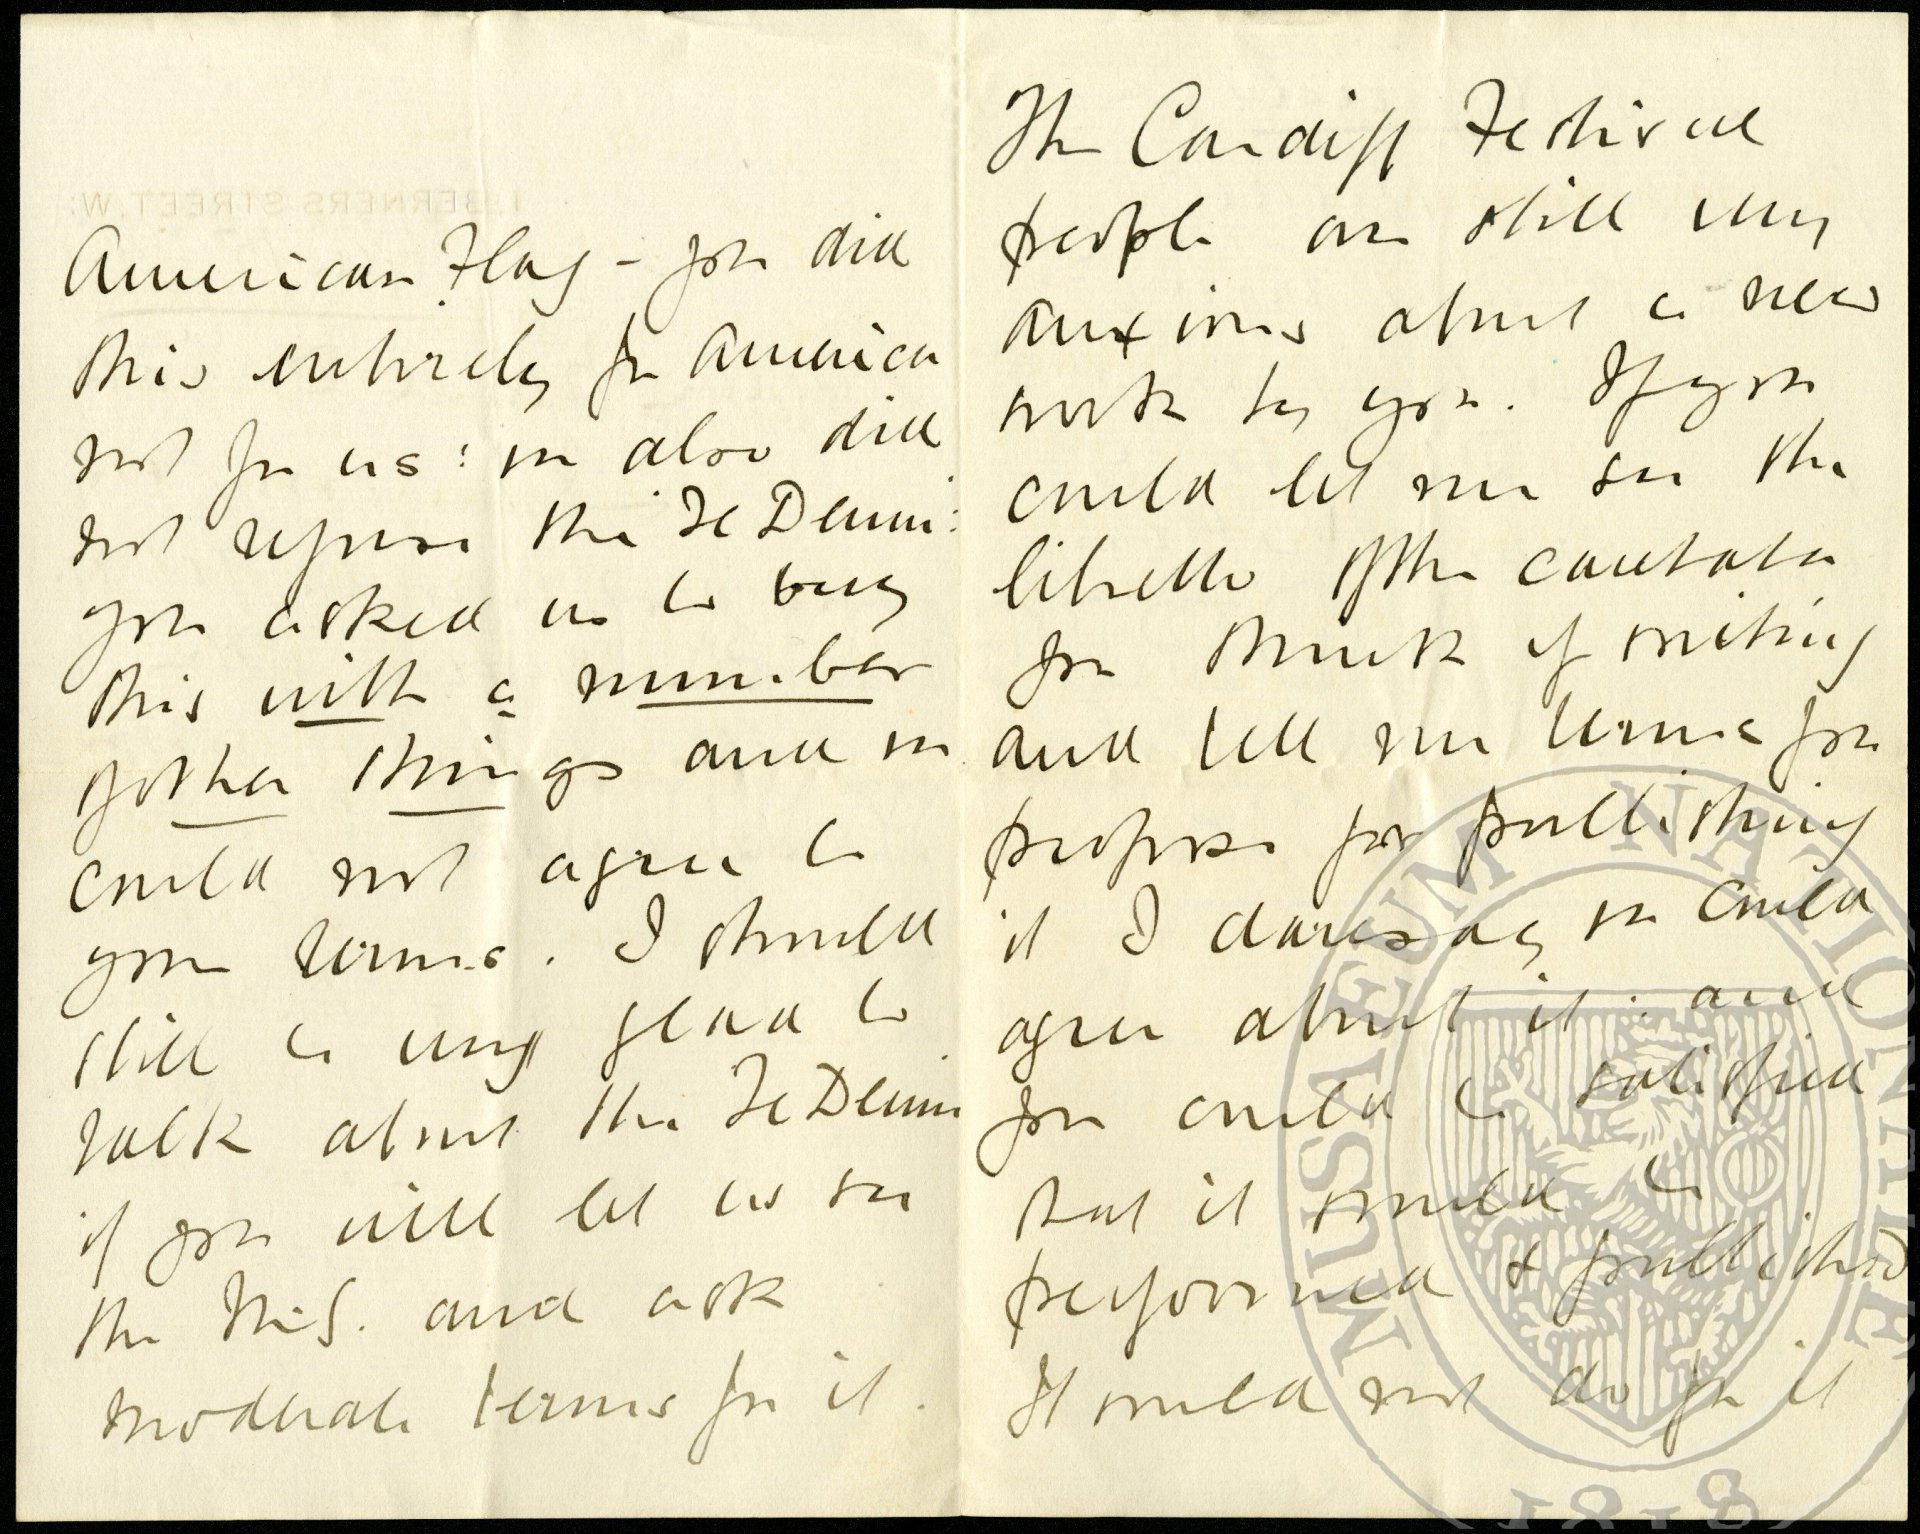 American Flag - you did
this entirely for America
not for us: we also did
not refuse the Te Deum:
you asked us to buy
this with a number
of other things and we
could not agree to
your terms. I should
still be very glad to
talk about the Te Deum
if you will let us see
the MS. and ask
moderate terms for it.
The Cardiff Festival
people are still very
anxious about a new
work by you. If you
could let me see the
libretto of the cantata
you think of writing
and tell me terms you
propose for publishing
it I daresay we could
agree about it: and
you could be satisfied
that it would be
performed & published
It would not do for it
1, BERNERS STREET, W.
MUSAEUM NATIONALE
1818